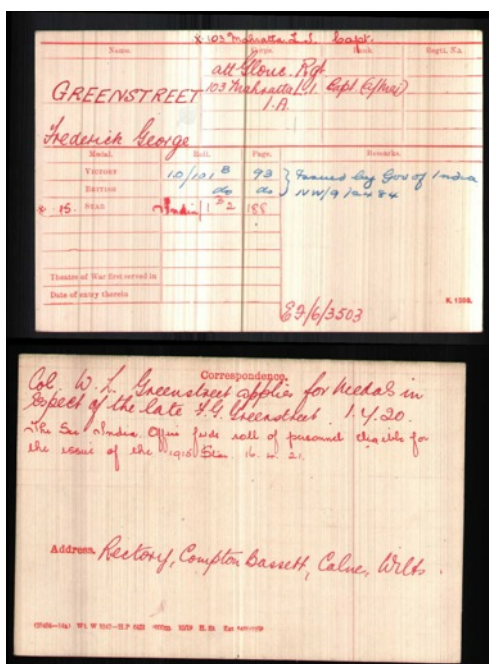 x 103 Mahratta L.I. Capt.
Name. Corps. Rank. Regtl. No.
att Glouc. Rgt
GREENSTREET 103 Mahratta L.I. Capt (a/Maj)
I.A.
Frederick George
Medal. Roll. Page. Remarks.
VICTORY 10/101 B 93 } Issued by Gov of India
BRITISH do do } NW/9/2484
x 15 STAR India 1 B 2 188
Theatre of War first served in
Date of entry therein
K. 1380.
E9/6/3503
Correspondence.
Col. W. L. Greenstreet applies for medals in
respect of the late F.G. Greenstreet. 1.4.20.
The Sec India Office fwds roll of personnel eligible for
the issue of the 1915 Star. 16. 4. 21.
Address. Rectory, Compton Bassett, Calne, Wilts